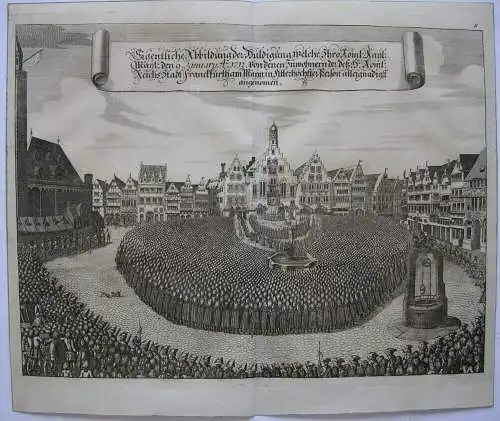 Eigentliche Abbildung der Huldigung welche Ihro Röml: Kaÿsl:
Maÿt: den 9. January. Aº. 1712. von denen Einwohnern der deß H: Röml:
Reichs Stadt Franckfurth am Maÿn in Allerhöchster Person allergnädigst
angenomen.